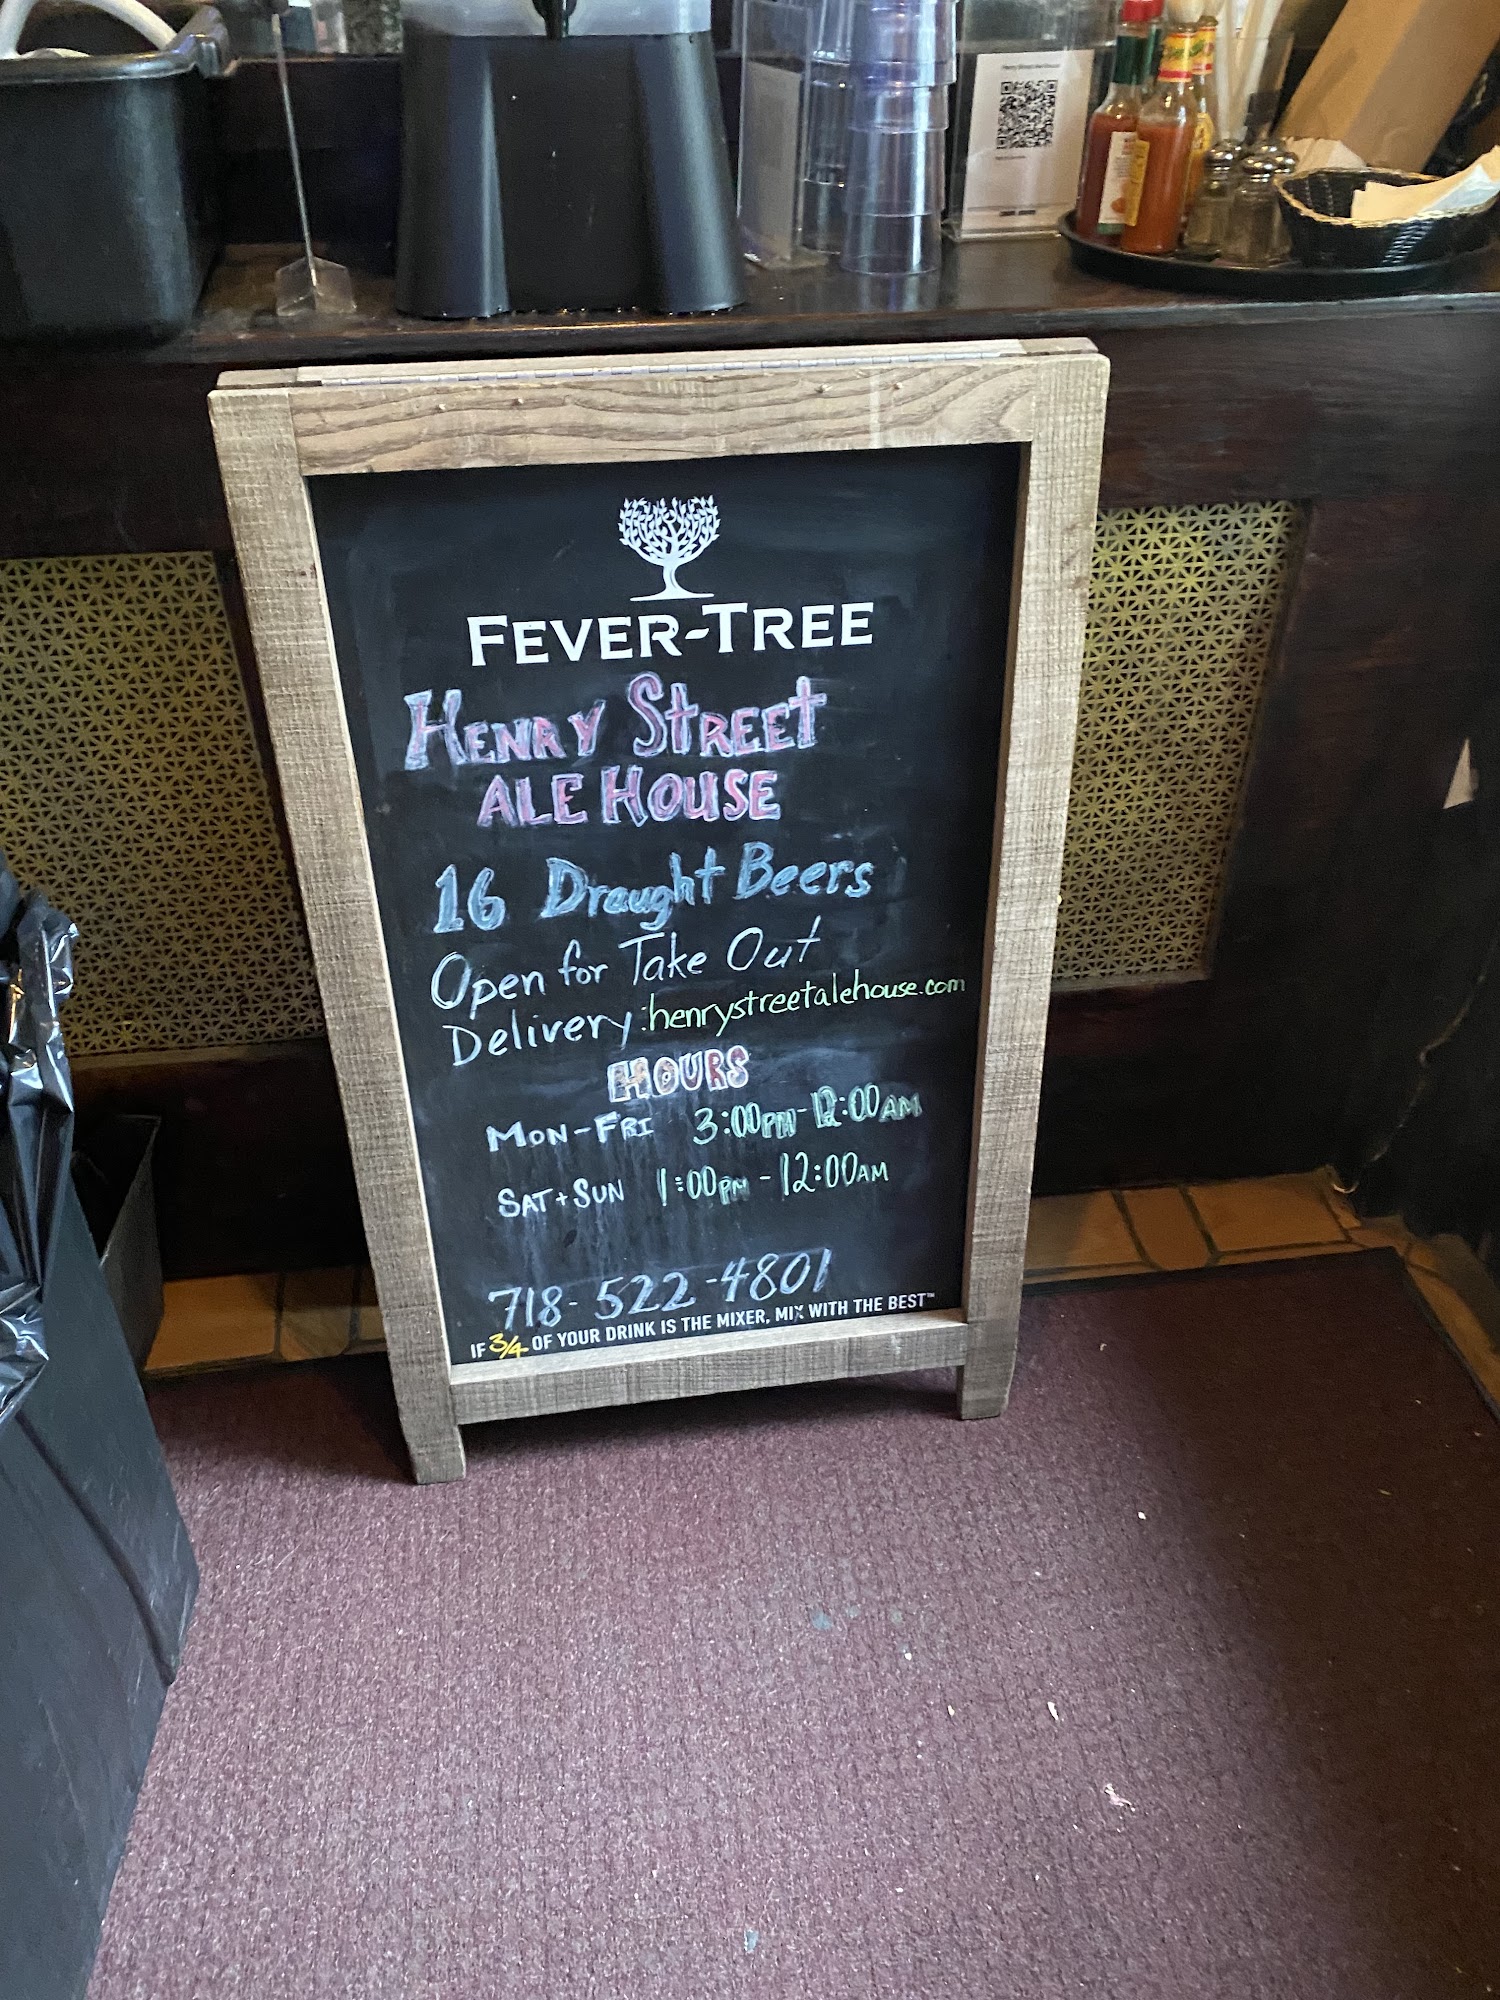 Henry Street Ale House
FEVER-TREE
HENRY STREET
ALE HOUSE
16 Draught Beers
Open for Take Out
Delivery: henrystreetalehouse.com
HOURS
MON-FRI 3:00PM-12:00AM
SAT+SUN 1:00PM-12:00AM
718-522-4801
IF 3/4 OF YOUR DRINK IS THE MIXER, MIX WITH THE BEST™